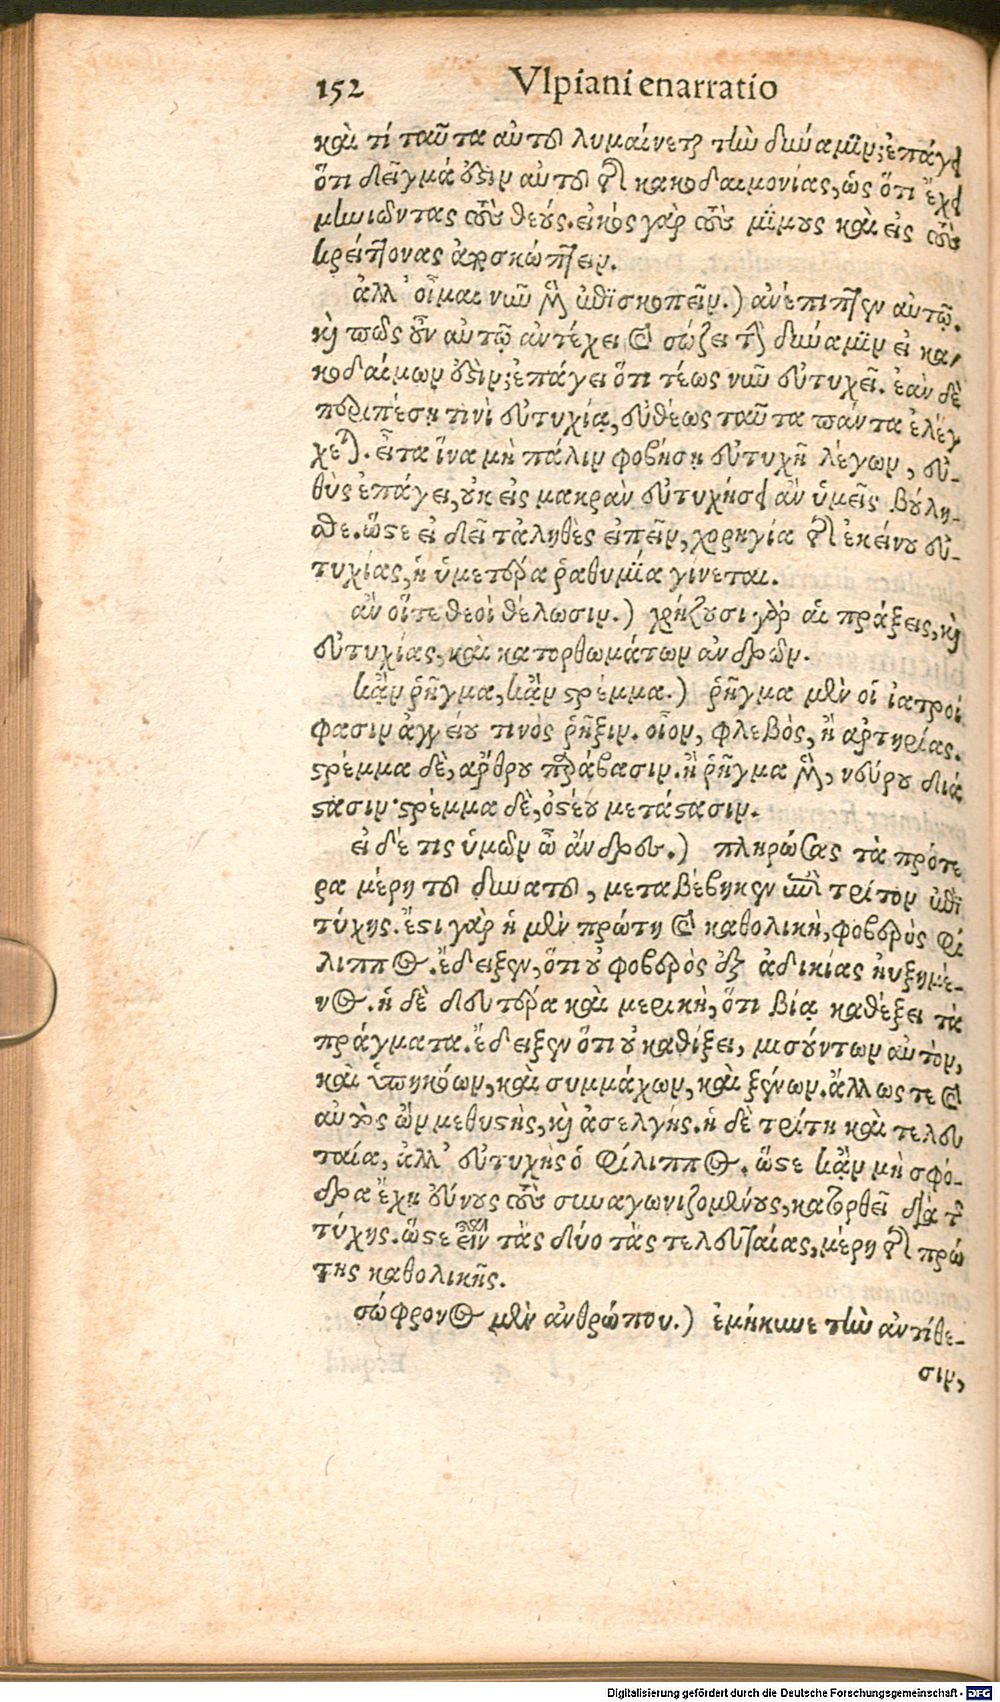 152 Vlpiani enarratio
καὶ τί ταῦτα αὐτοῦ λυμαίνεται τὴν δύναμιν; ἐπάγει
ὅτι δεῖγμά ἐστιν αὐτοῦ τῆς κακοδαιμονίας, ὡς ὅτι ἔχει
μιμοῦντας τοὺς θεούς. εἰκὸς γὰρ τοὺς μίμους καὶ εἰς τοὺς
κρείττονας ἀποσκώπτειν.
ἀλλ' οἶμαι νῦν μὲν ἐπισκοτεῖν.) ἀνέπιπτεν αὐτῷ.
καὶ πῶς οὖν αὐτῷ ἀντέχει καὶ σώζει τὴν δύναμιν εἰ κα/
κοδαίμων ἐστίν; ἐπάγει ὅτι τέως νῦν εὐτυχεῖ. ἐὰν δὲ
περιπέσῃ τινὶ δυτυχίᾳ, εὐθέως ταῦτα πάντα ἐλέγ
χεται. εἶτα ἵνα μὴ πάλιν φοβήσῃ εὐτυχῆ λέγων, εὐ-
θὺς ἐπάγει, οὐκ εἰς μακρὰν εὐτυχήσει ἂν ὑμεῖς βούλη-
σθε. ὥστε εἰ δεῖ τἀληθὲς εἰπεῖν, χορηγία τῆς ἐκείνου εὐ-
τυχίας, ἡ ὑμετέρα ῥαθυμία γίνεται.
ἂν οἵτε θεοὶ θέλωσιν.) χρῄζουσι γὰρ αἱ πράξεις, καὶ
εὐτυχίας, καὶ κατορθωμάτων ἀνδρῶν.
κἂν ῥῆγμα, κἂν στρέμμα.) ῥῆγμα μὲν οἱ ἰατροί
φασιν ἀγγείου τινὸς ῥῆξιν. οἷον, φλεβὸς, ἢ ἀρτηρίας.
στρέμμα δὲ, ἄρθρου παράβασιν. ἢ ῥῆγμα μὲν, νεύρου διά
στασιν· στρέμμα δὲ, ὀστέου μετάστασιν.
εἰ δέ τις ὑμῶν ὦ ἄνδρες.) πληρώσας τὰ πρότε
ρα μέρη τοῦ δυνατοῦ, μεταβέβηκεν ἐπὶ τρίτον ἐπὶ
τύχης. ἔστι γὰρ ἡ μὲν πρώτη καὶ καθολικὴ, φοβερὸς Φί
λιππος. ἔδειξεν, ὅτι οὐ φοβερὸς ἐξ ἀδικίας ηὐξημέ-
νος. ἡ δὲ δευτέρα καὶ μερικὴ, ὅτι βίᾳ καθέξει τὰ
πράγματα. ἔδειξεν ὅτι οὐ καθέξει, μισούντων αὐτὸν,
καὶ ὑπηκόων, καὶ συμμάχων, καὶ ξένων. ἄλλως τε καὶ
αὐτὸς ὢν μεθυστὴς, καὶ ἀσελγής. ἡ δὲ τρίτη καὶ τελευ
ταία, ἀλλ' εὐτυχὴς ὁ Φίλιππος. ὥστε κἂν μὴ σφό-
δρα ἔχῃ εὔνους τοὺς συναγωνιζομένους, κατορθεῖ διὰ τῆς
τύχης. ὥστε εἶναι τὰς δύο τὰς τελευταίας, μέρη τῆς πρώ
της καθολικῆς.
σώφρονος μὲν ἀνθρώπου.) ἐμήκυνε τὴν ἀντίθε-
σιν,
Digitalisierung gefördert durch die Deutsche Forschungsgemeinschaft - DFG